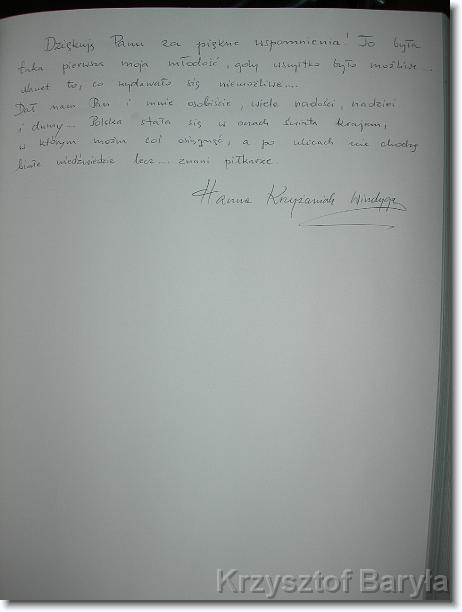 Dziękuję Panu za piękne wspomnienia! To była
taka pierwsza moja młodość, gdy wszystko było możliwe...
Nawet to, co wydawało się niemożliwe....
Dał nam Pan i mnie osobiście, wiele radości, nadziei
i dumy... Polska stała się w oczach świata krajem,
w którym można coś osiągnąć, a po ulicach nie chodzą
białe niedźwiedzie lecz.... znani piłkarze.
Hanna Krzyżaniak Windyga
Krzysztof Baryła